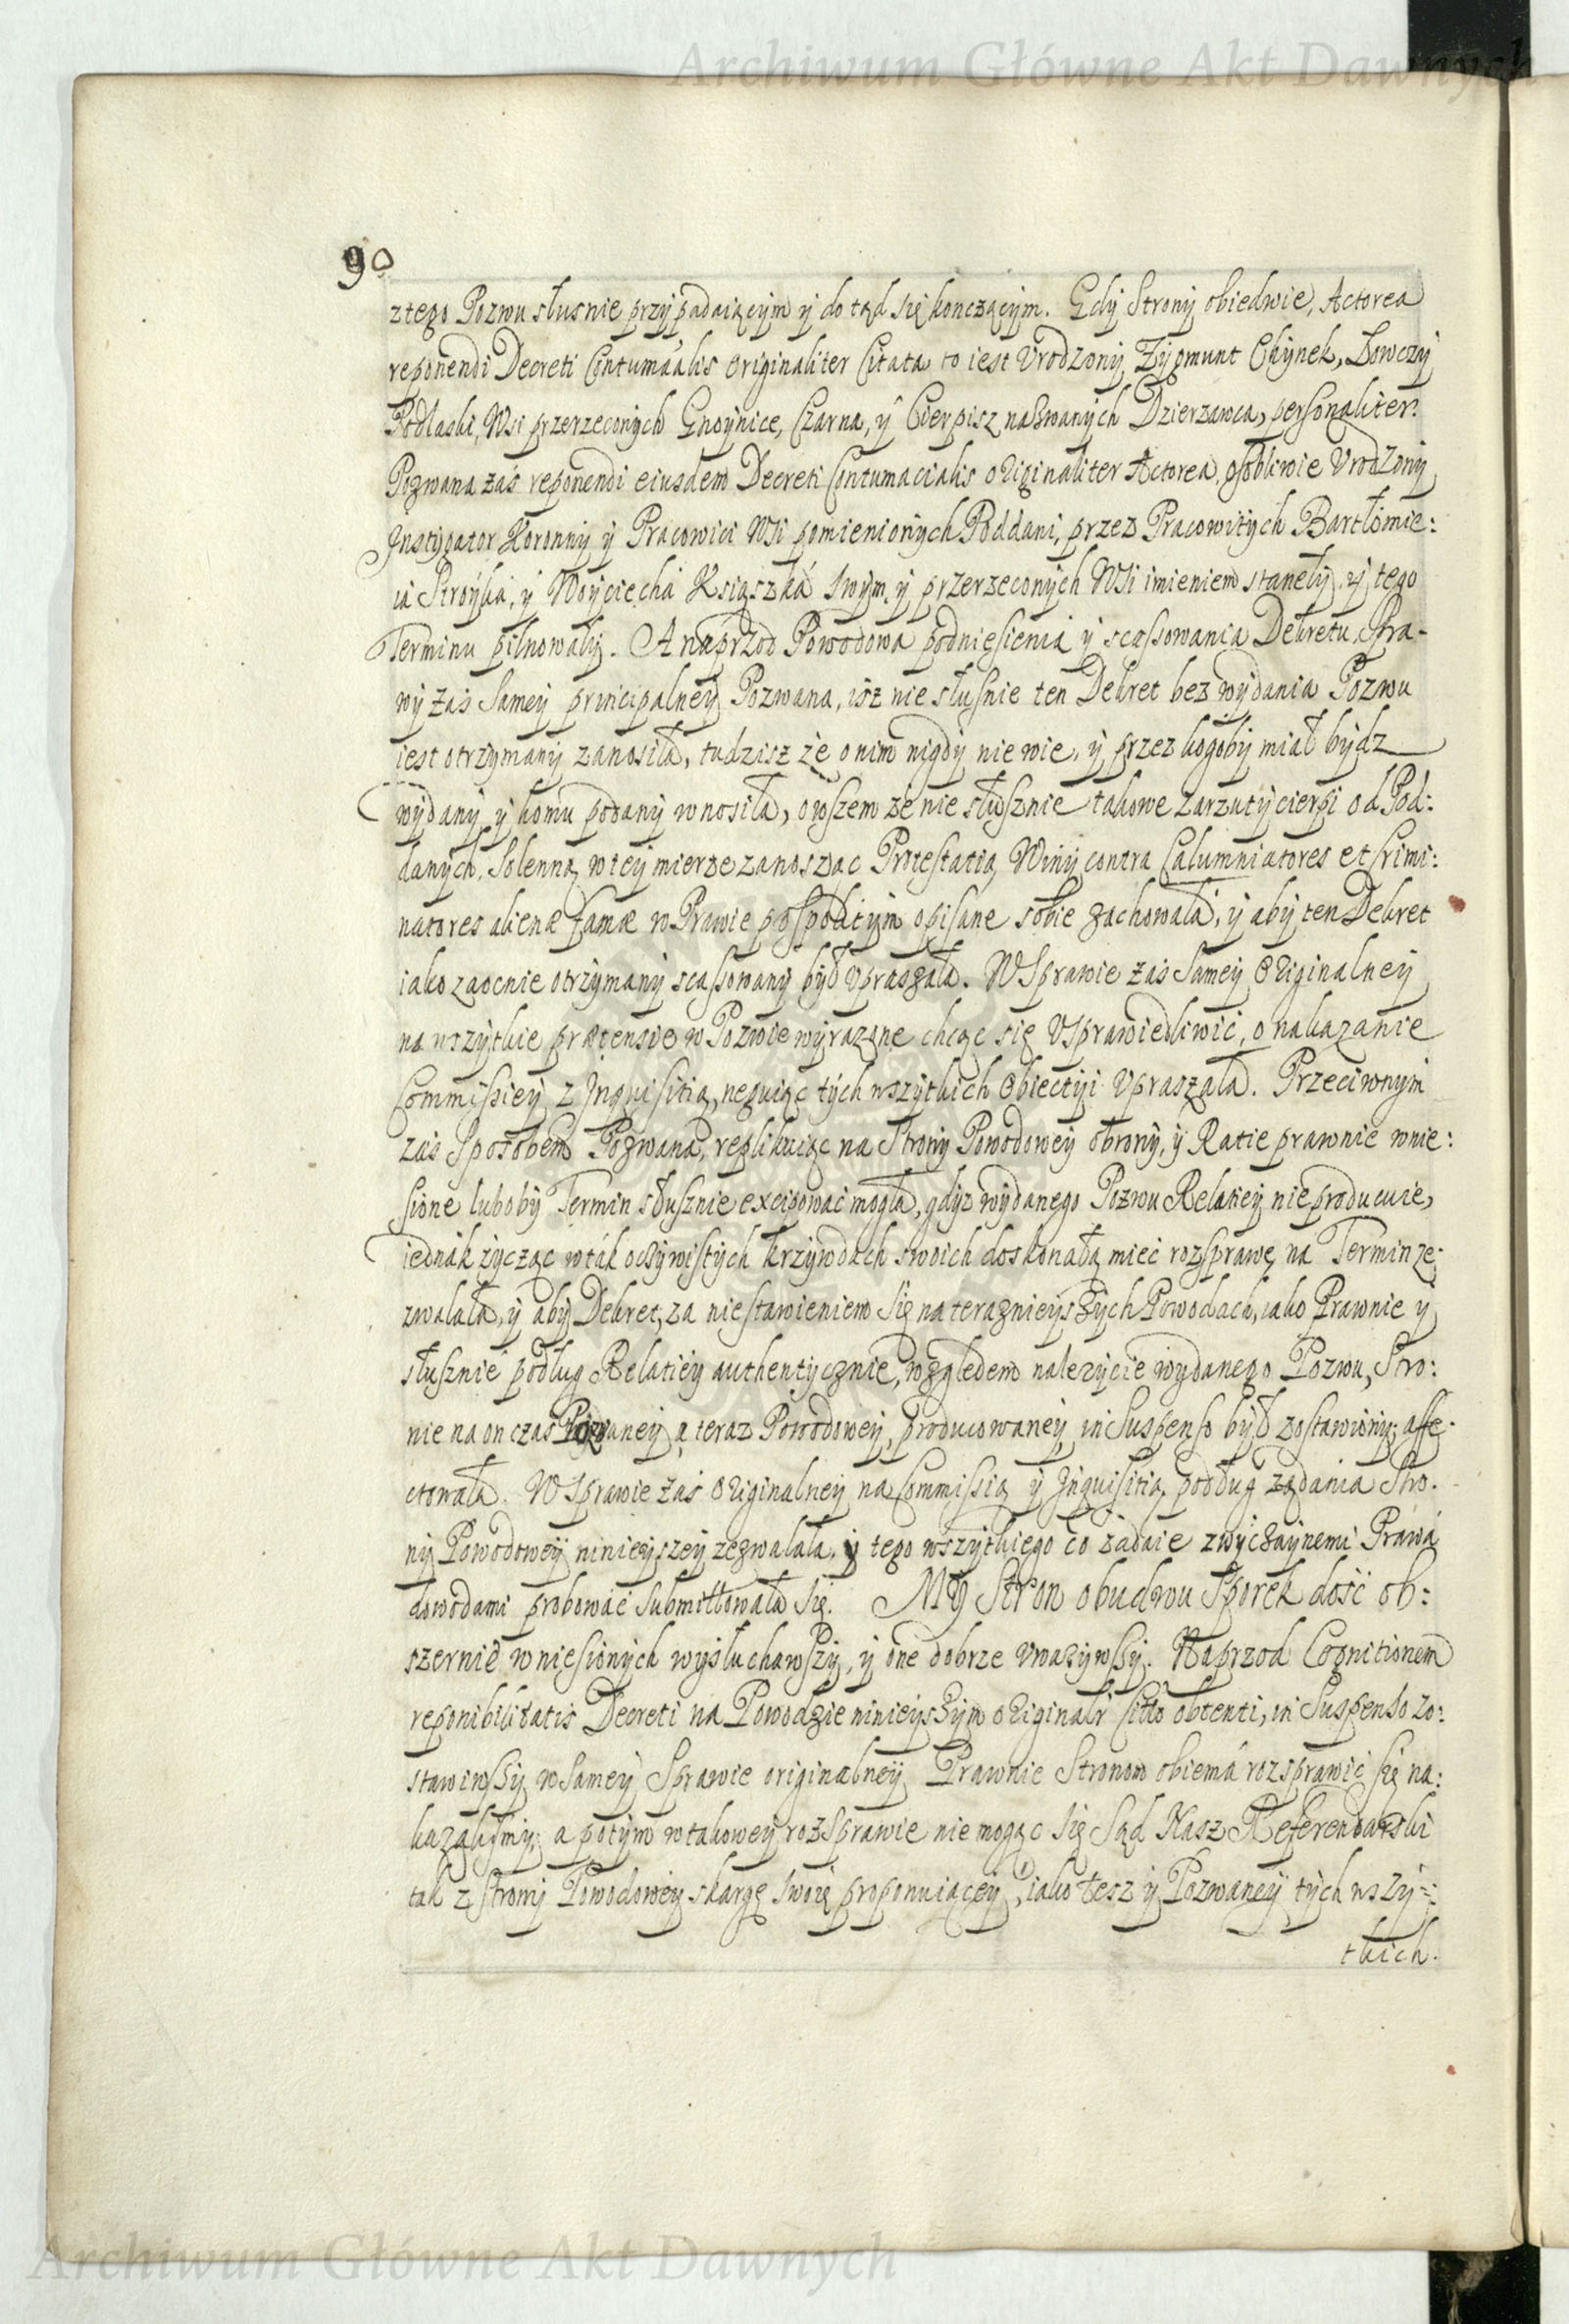 Archiwum Główne Akt Dawnych
90
z tego Pozwu słusnie przypadaiącym y do tąd się kończącym. Gdy Strony obiedwie, Actorea
reponendi Decreti Contumacialis originaliter Citata to iest Vrodzony Zygmunt Chynek, Łowczy
Podlaski, Wsi przerzeconych Gnoynice, Czarna, y Cierpisz nazwanych Dzierzawca, personaliter.
Pozwana zaś reponendi eiusdem Decreti Contumacialis originaliter Actorea, osobliwie Vrodzony
Instygator Koronny y Pracowici Wsi pomienionych Poddani, przez Pracowitych Bartłomie:
ia Stroyka, y Woyciecha Książka swym y przerzeconych Wsi imieniem stanęły, y tego
Terminu pilnowały. A naprzod Powodowa podniesienia y scassowania Dekretu, Spra-
wy zaś samey principalney Pozwana, isz nie słusnie ten Dekret bez wydania Pozwu
iest otrzymany zanosiła, tudzisz że o nim nigdy nie wie, y przez kogoby miał bydz
wydany y komu podany wnosiła, owszem że nie słusznie takowe zarzuty cierpi od Pod:
danych, Solenną w tey mierze zanosząc Protestatią Winy contra Calumniatores et Crimi:
natores alienæ famæ w Prawie pospolitym opisane sobie zachowała, y aby ten Dekret
iako zaocnie otrzymany scassowany był vpraszała. W Sprawie zaś Samey Originalney
na wszytkie prætensie w Pozwie wyrazone chcąc się Vsprawiedliwić, o nakazanie
Commissiey z Inquisitią, neguiąc tych wszytkich Obiectyi Vpraszała. Przeciwnym
zaś Sposobem Pozwana, replikuiąc na Strony Powodowey obrony, y Ratie prawnie wnie:
sione luboby Termin słusznie excipować mogła, gdyz wydanego Pozwu Relatiey nie producuie,
iednák życząc w ták oczywistych krzywdach swoich doskonałą mieć rozsprawę na Termin ze:
zwalała, y aby Dekret, za niestawieniem Się na teraznieyszych Powodach, iako Prawnie y
słusznie podług Relatiey authentycznie, względem nalezycie wydanego Pozwu, Stro:
nie na on czas Pozwaney a teraz Powodowey, producowaney, in Suspenso był zostawiony, affe:
ctowała. W Sprawie zaś Originalney na Commissią y Inquisitią podług ządania Stro:
ny Powodowey ninieyszey zezwalała, y tego wszytkiego co zadaie zwyczaynemi Prawa
dowodami probować Submittowała Się. My Stron obudwu Sporek dość ob:
szernie wniesionych wysłuchawszy, y one dobrze vwazywszy. Naprzod Cognitionem
reponibilitatis Decreti na Powodzie ninieyszym originalr citto obtenti, in Suspenso zo:
stawiwszy w Samey Sprawie originalney Prawnie Stronom obiema rozsprawić się na:
kazalismy, a potym w takowey rozsprawie nie mogąc Się Sąd Nasz Referendarski
tak z Strony Powodowey skargę swoię proponuiącey, iako tesz y Pozwaney tych wszy:
tkich.
Archiwum Główne Akt Dawnych